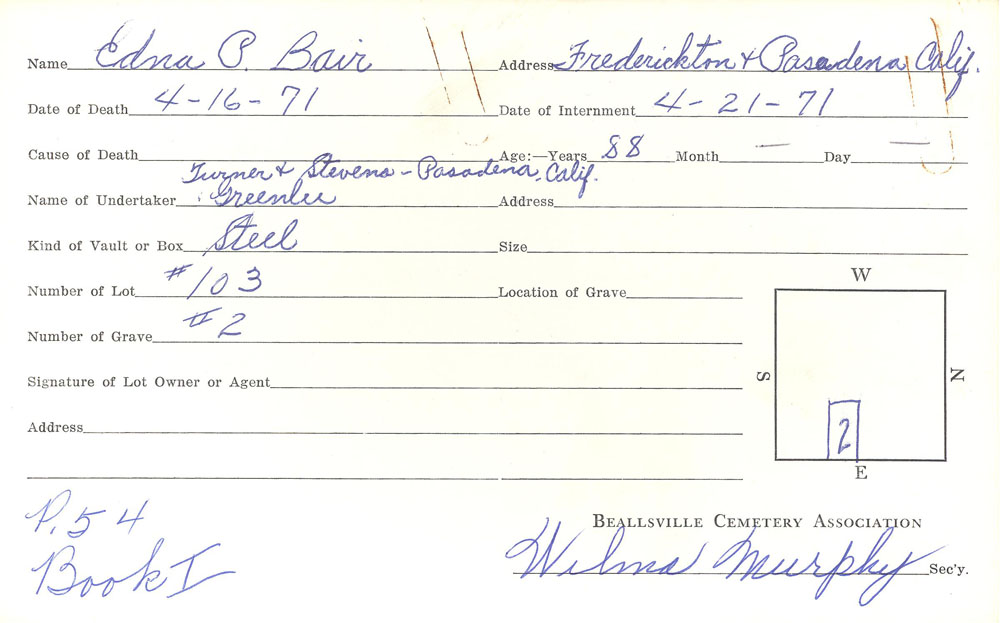 Name Edna P. Bair Address Frederickton & Pasadena, Calif.
Date of Death 4-16-71 Date of Internment 4-21-71
Cause of Death Age:—Years 88 Month — Day —
Turner & Stevens - Pasadena, Calif.
Name of Undertaker Greenlee Address
Kind of Vault or Box Steel Size
Number of Lot #103 Location of Grave
Number of Grave #2
Signature of Lot Owner or Agent
Address
W
S
N
2
E
P. 54
Book I
Beallsville Cemetery Association
Wilma Murphy Sec'y.